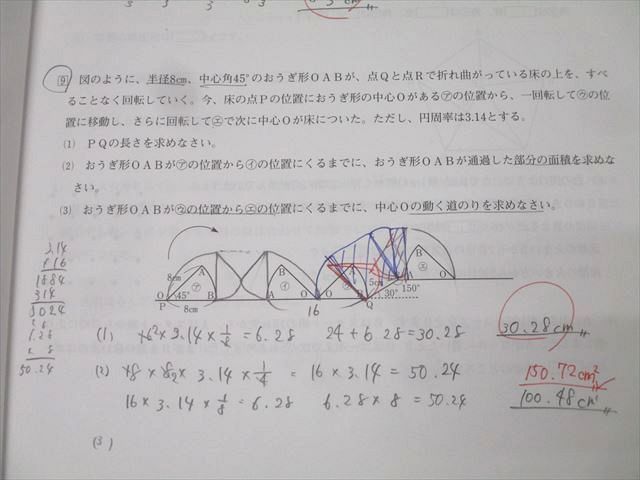 ⑨ 図のように、半径8㎝、中心角45°のおうぎ形OABが、点Qと点Rで折れ曲がっている床の上を、すべ
ることなく回転していく。今、床の点Pの位置におうぎ形の中心Oがある㋐の位置から、一回転して㋒の位
置に移動し、さらに回転して㋓で次に中心Oが床についた。ただし、円周率は3.14とする。
(1) PQの長さを求めなさい。
(2) おうぎ形OABが㋐の位置から㋑の位置にくるまでに、おうぎ形OABが通過した部分の面積を求めな
さい。
(3) おうぎ形OABが㋒の位置から㋓の位置にくるまでに、中心Oの動く道のりを求めなさい。
8cm
A
㋐
B
O
45°
P
8cm
B
㋑
A
O
16
A
Q
5cm
30°
150°
B
㋓
A
O
3.14
×16
1884
314
5024
6.28
× 8
50.24
(1) 16×3.14×1/8=6.28 24+6.28=30.28
30.28cm
(2) ×3.14×1/4 = 16×3.14=50.24
150.72cm²
16×3.14×1/8=6.28 6.28×8=50.24
100.48cm²
(3)